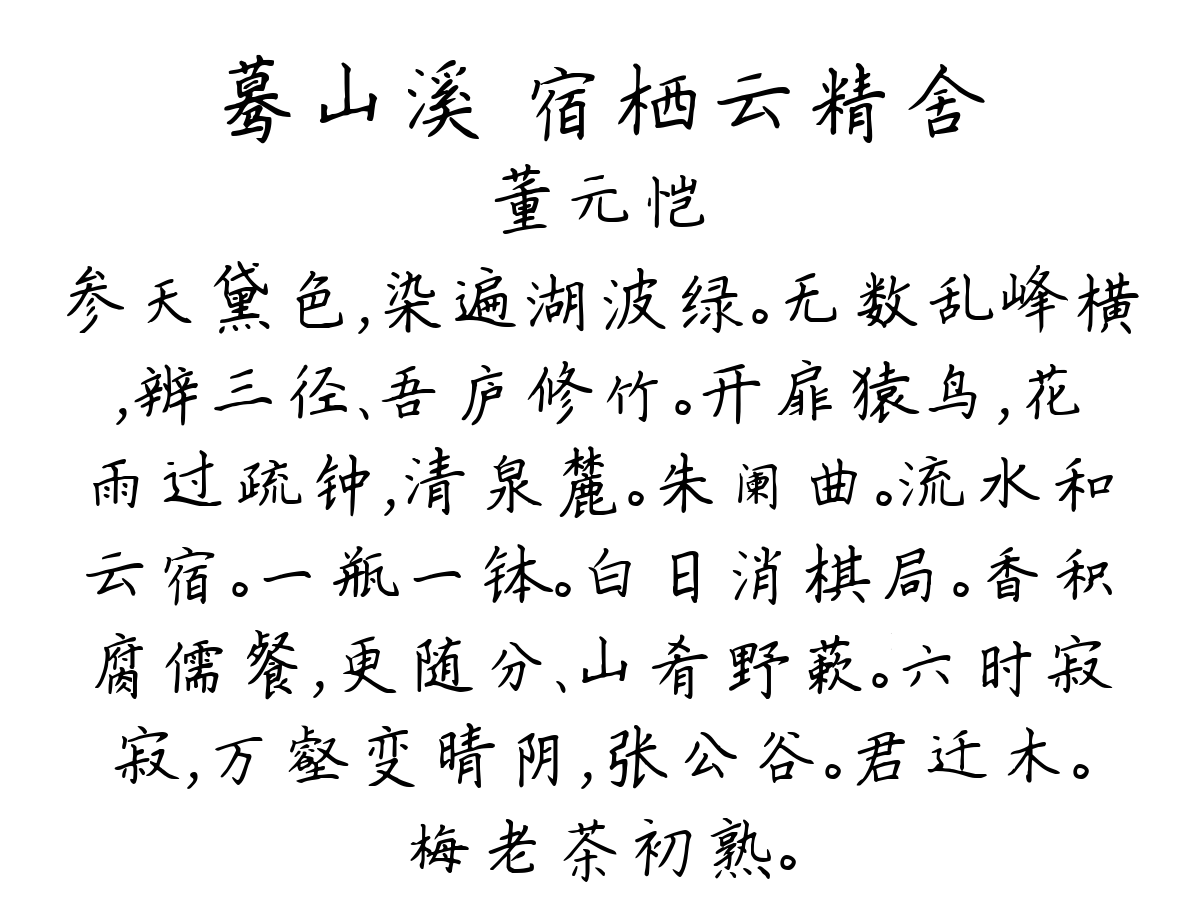 蓦山溪 宿栖云精舍
董元恺
参天黛色,染遍湖波绿。无数乱峰横
,辨三径、吾庐修竹。开扉猿鸟,花
雨过疏钟,清泉麓。朱阑曲。流水和
云宿。一瓶一钵。白日消棋局。香积
腐儒餐,更随分、山肴野蔌。六时寂
寂,万壑变晴阴,张公谷。君迁木。
梅老茶初熟。